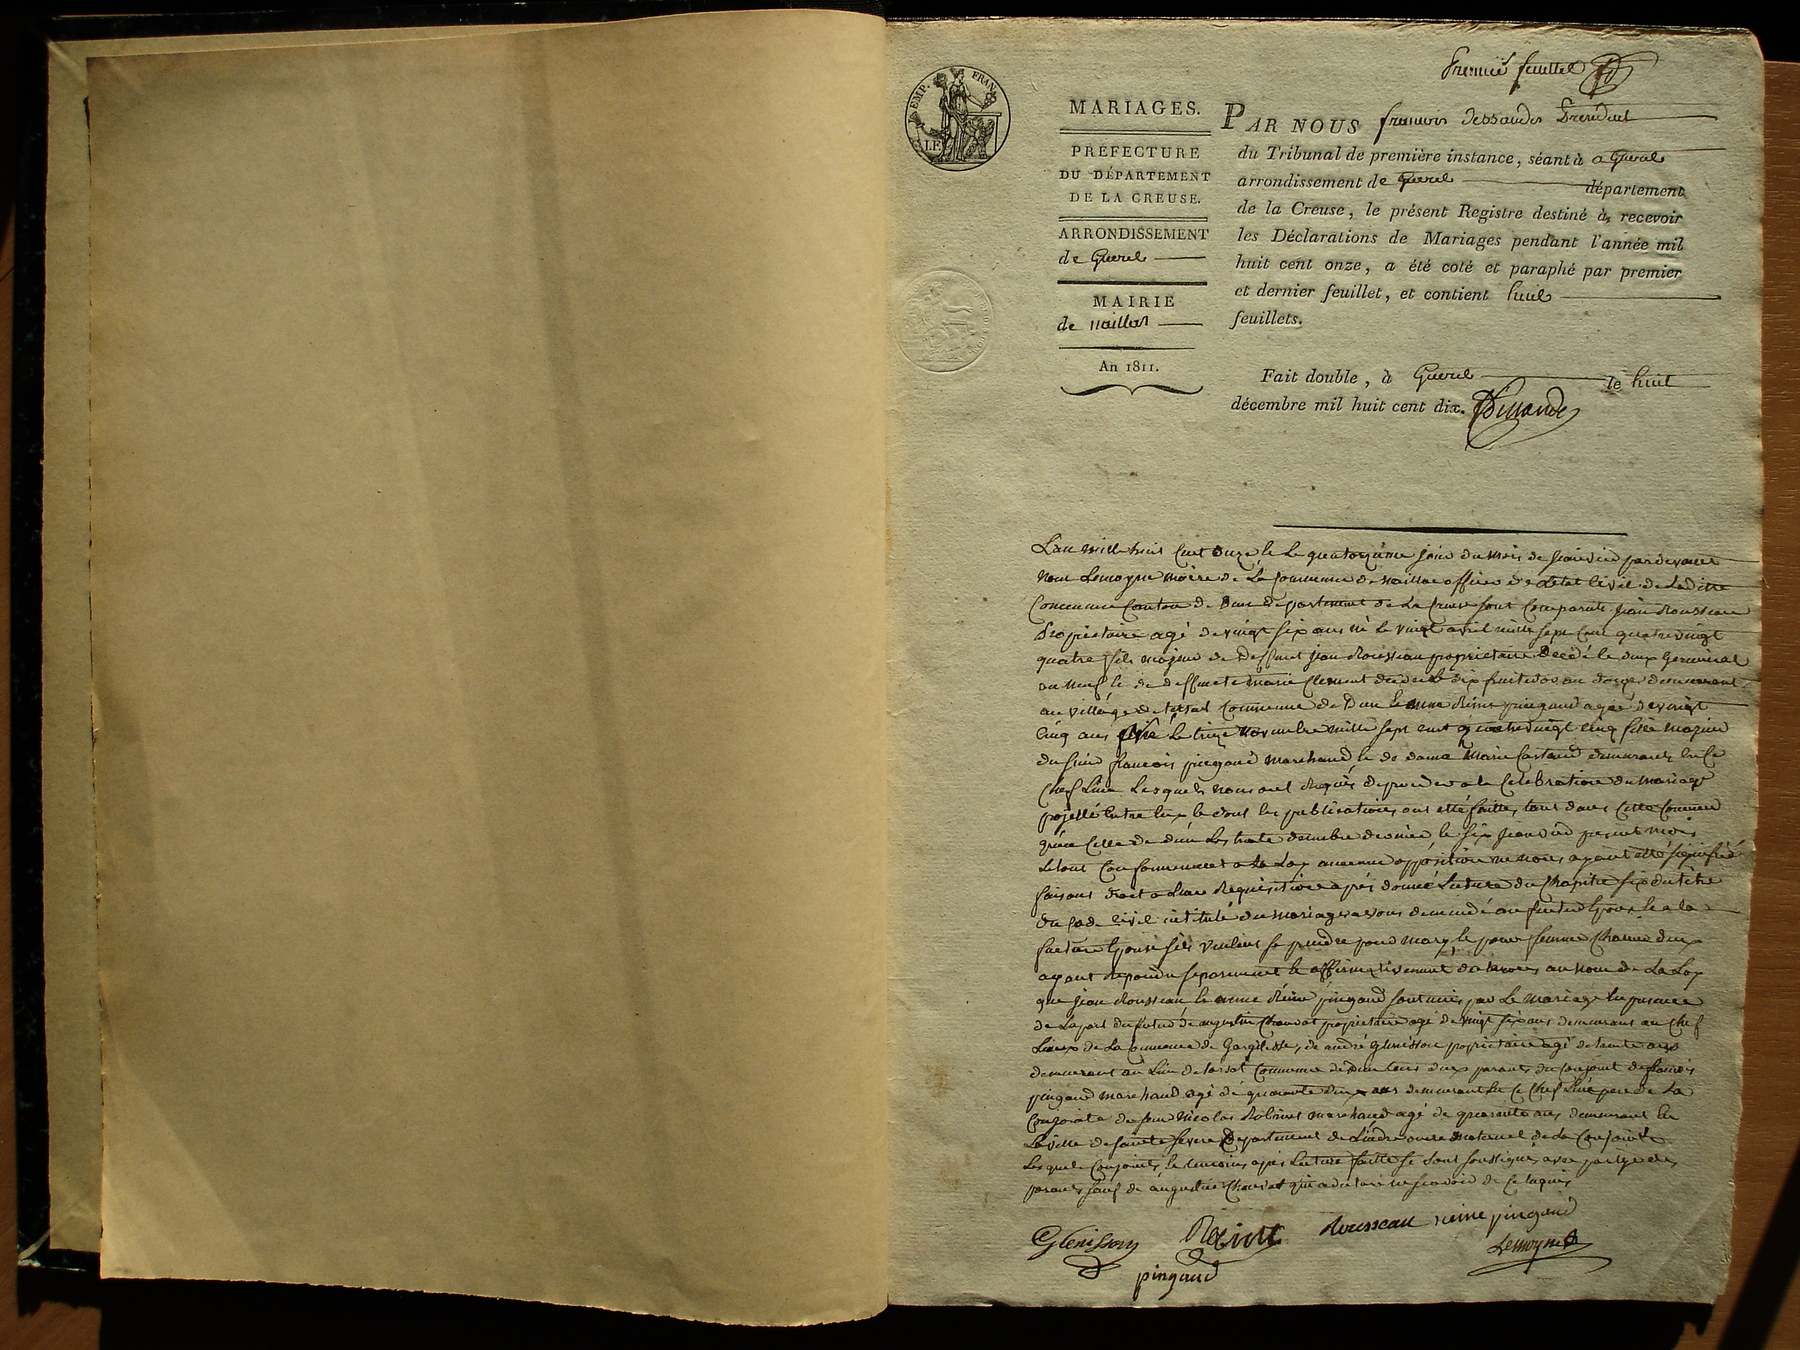 Premier feuillet
EMP. FRAN.
MARIAGES.
PRÉFECTURE
DU DÉPARTEMENT
DE LA CREUSE.
ARRONDISSEMENT
de Gueret
MAIRIE
de naillat
An 1811.
PAR NOUS francois dessandes President
du Tribunal de première instance, séant à a Gueret
arrondissement de Gueret département
de la Creuse, le présent Registre destiné à recevoir
les Déclarations de Mariages pendant l'année mil
huit cent onze, a été coté et paraphé par premier
et dernier feuillet, et contient huit
feuillets.
Fait double, à Gueret le huit
décembre mil huit cent dix.
L'an mille huit Cent Onze le quatorzieme jour du mois de janvier pardevant
nous Lemoyne maire de La Commune de naillat officier de L'etat Civil de Ladite
Commune Canton de Dun departement de La Creuse sont Comparus jean Rousseau
Propriétaire agé de vingt six ans né Le vingt avril mille sept Cent quatre vingt
quatre fils majeur de Deffunt jean Rousseau propriétaire Décédé le deux Germinal
an neuf et de deffunte marie Clement décédée Le dix fruitidor an douze demeurant
au village de Commune de Dun anne Reine pingaud agée de vingt
Cinq ans née Le treize Novembre mille sept cent quatre vingt Cinq fille majeur
du sieur francois pingaud marchand et de dame Marie demeurant en Ce
Chef Lieu Lesquels nous ont Requis de proceder a la Celebration du mariage
projetté Entre Eux et dont les publications ont été faittes tant dans Cette Commune
que Celle de dun Les trente decembre dernier et six janvier present mois
Le tout Conformement a La Loy aucunne opposition ne nous ayant été signifiée
faisant droit a Leur Requisition après donné Lecture du Chapitre six du titre
du Code Civil intitulé du mariage avons demandé au futur Epoux et a la
future Epouse s'ils veulent se prendre pour mary et pour femme Chacun d'eux
ayant repondu séparement et affirmativement declarons au nom de La Loy
que jean Rousseau et anne Reine pingaud sont unis par Le mariage En presence
de La part du futur de augustin propriétaire agé de vingt six ans demeurant au Chef
Lieux de La Commune de Gargilesse, de andré Glenisson propriétaire agé de trente ans
demeurant au Lieu de Commune de Dun tous deux parants du Conjoint de francois
pingaud marchand agé de quarante deux ans demeurant En Ce Chef Lieu pere de La
Conjointe du sieur Nicolas marchand agé de quarante ans demeurant En
La ville de Sainte Severe Departement de L'indre oncle maternel de La Conjointe
Lesquels Conjoints, et temoins après Lecture faitte se sont soussignés avec partye des
parants sauf de augustin qui a declaré ne scavoir de Ce requis
Glenisson Rousseau reine pingaud
pingaud Lemoyne